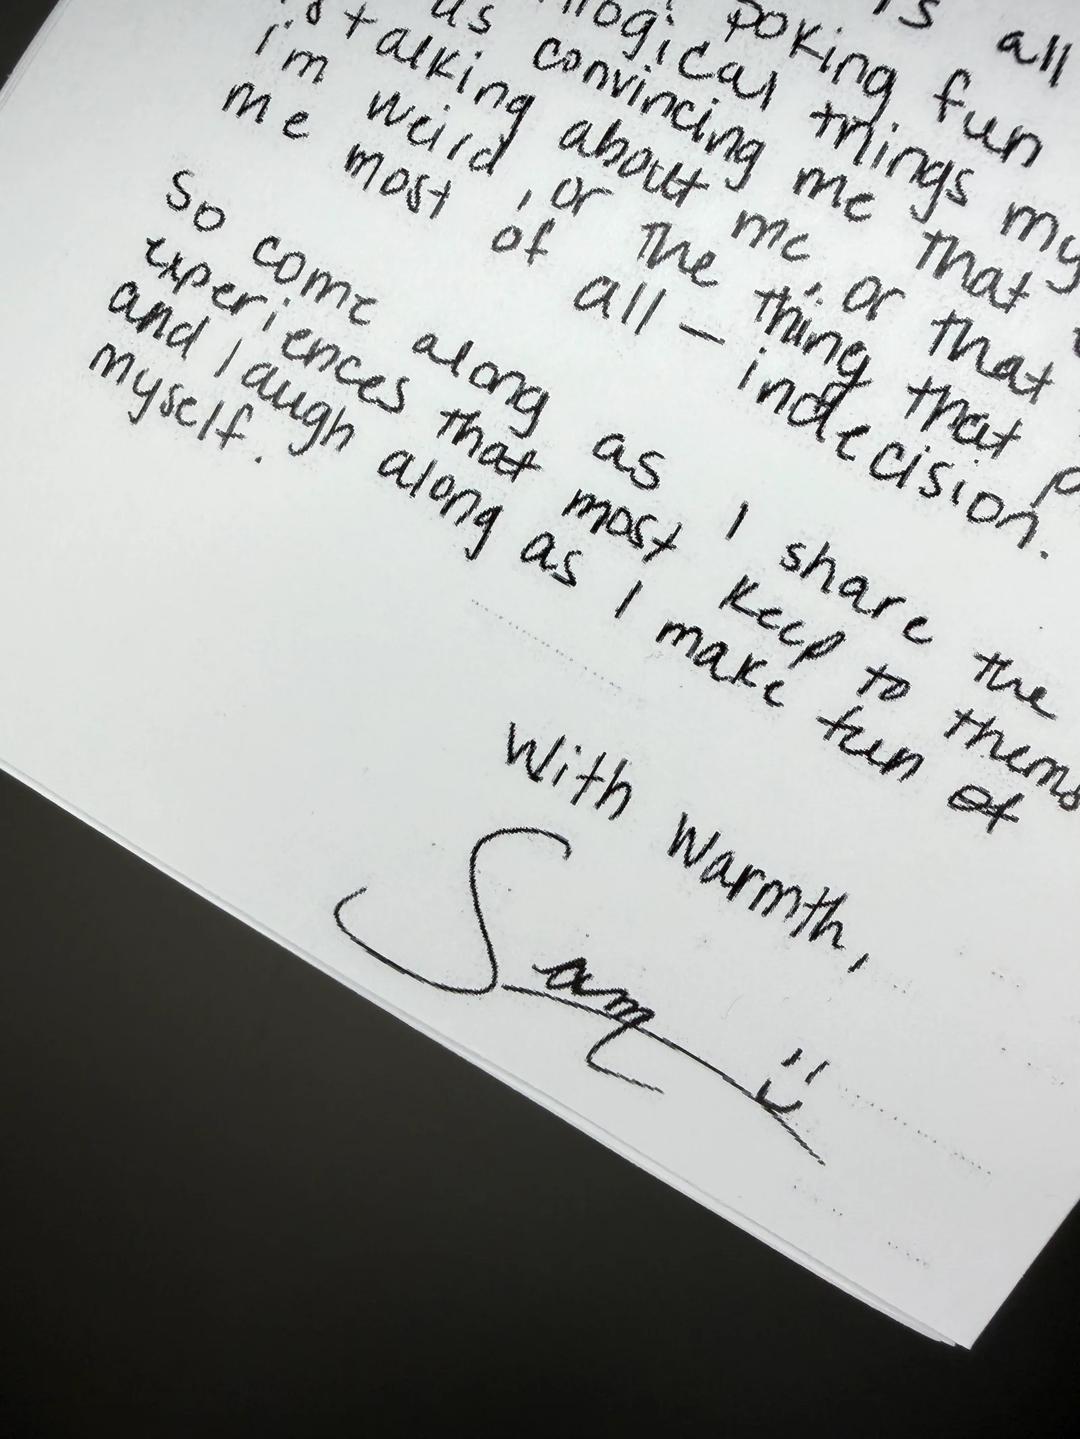 is all
poking fun
logical things my
as convincing me that
talking about me, or that
i'm weird, or the thing that
me most of all — indecision.
So come along as I share the
experiences that most keep to thems
and laugh along as I make fun of
myself.
With Warmth,
Sam